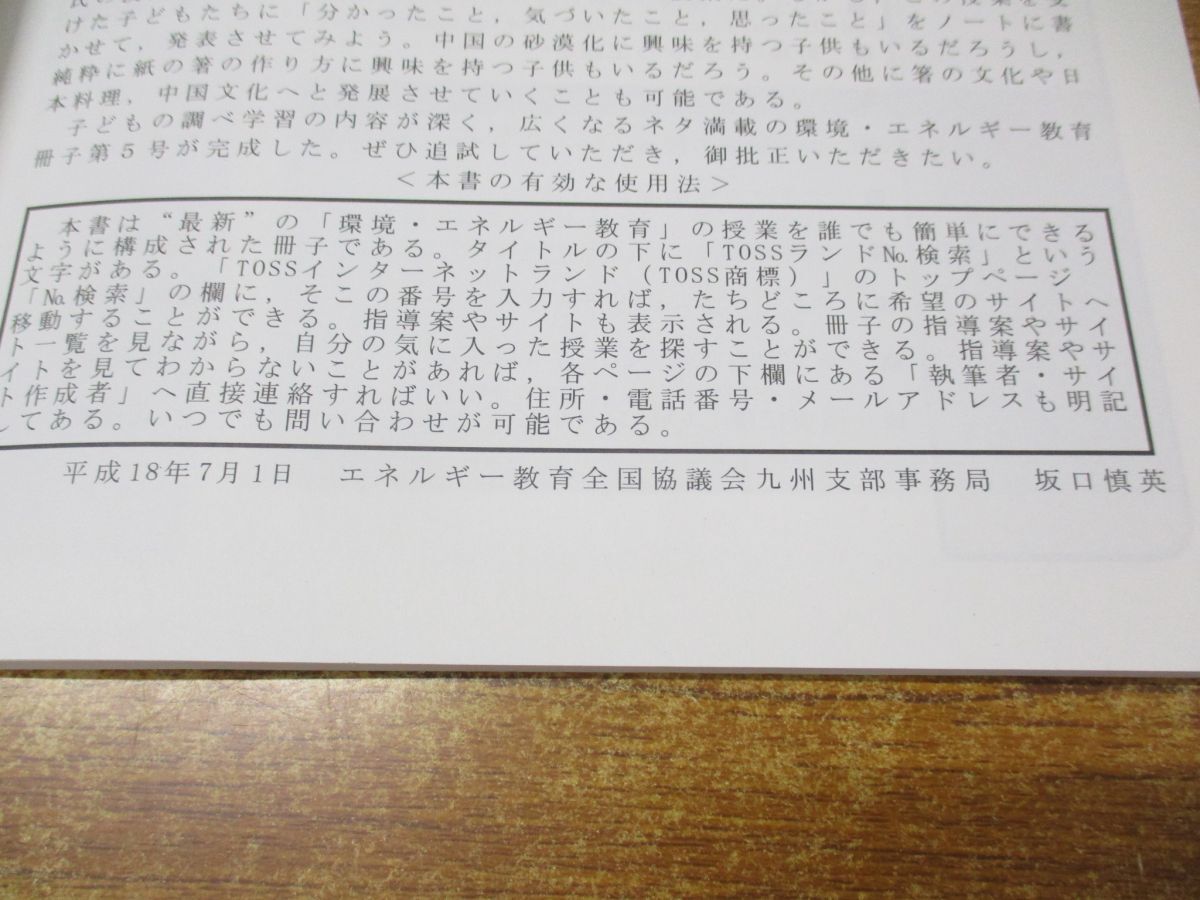 けた子どもたちに「分かったこと，気づいたこと，思ったこと」をノートに書
かせて，発表させてみよう。中国の砂漠化に興味を持つ子供もいるだろうし，
純粋に紙の箸の作り方に興味を持つ子供もいるだろう。その他に箸の文化や日
本料理，中国文化へと発展させていくことも可能である。
子どもの調べ学習の内容が深く，広くなるネタ満載の環境・エネルギー教育
冊子第５号が完成した。ぜひ追試していただき，御批正いただきたい。
＜本書の有効な使用法＞
本書は“最新”の「環境・エネルギー教育」の授業を誰でも簡単にできる
ように構成された冊子である。タイトルの下に「TOSSランド№検索」という
文字がある。「TOSSインターネットランド（TOSS商標）」のトップページ
「№検索」の欄に，そこの番号を入力すれば，たちどころに希望のサイトへ
移動することができる。指導案やサイトも表示される。冊子の指導案やサイ
ト一覧を見ながら，自分の気に入った授業を探すことができる。指導案やサ
イトを見てわからないことがあれば，各ページの下欄にある「執筆者・サイ
ト作成者」へ直接連絡すればいい。住所・電話番号・メールアドレスも明記
してある。いつでも問い合わせが可能である。
平成18年７月１日　エネルギー教育全国協議会九州支部事務局　坂口慎英